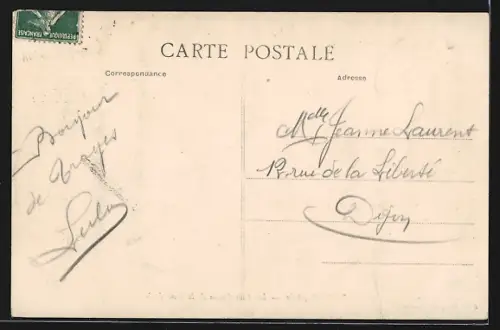 REPUBLIQUE FRANÇAISE
CARTE POSTALE
Correspondance
Adresse
Bonjour
de Troyes
Mlle Jeanne Laurent
12 rue de la Liberté
Dijon